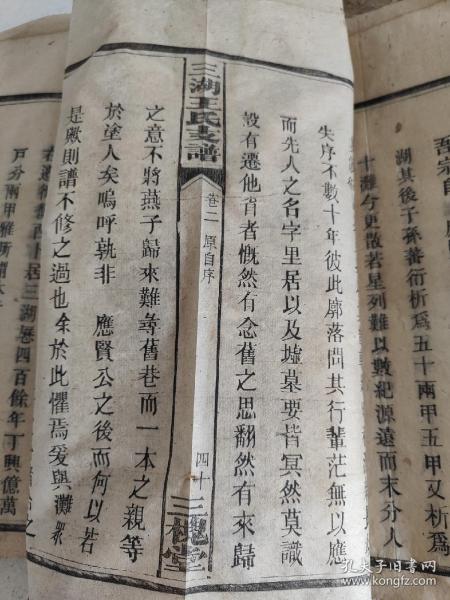 吾宗自
湖其後子孫蕃衍析爲五十兩甲五甲又析爲
十灘今更散若星列難以數紀源遠而末分人
失序不數十年彼此廓落問其行輩茫無以應
而先人之名字里居以及墟墓要皆冥然莫識
設有遷他省者慨然有念舊之思翻然有來歸
三湖王氏支譜
卷二 原自序
四十
三槐堂
之意不將燕子歸來難尋舊巷而一本之親等
於塗人矣嗚呼孰非 應賢公之後而何以若
是歟則譜不修之過也余於此懼焉爰與灘眾
卜居三湖歷四百餘年丁興億萬
戸分兩甲
孔夫子旧书网